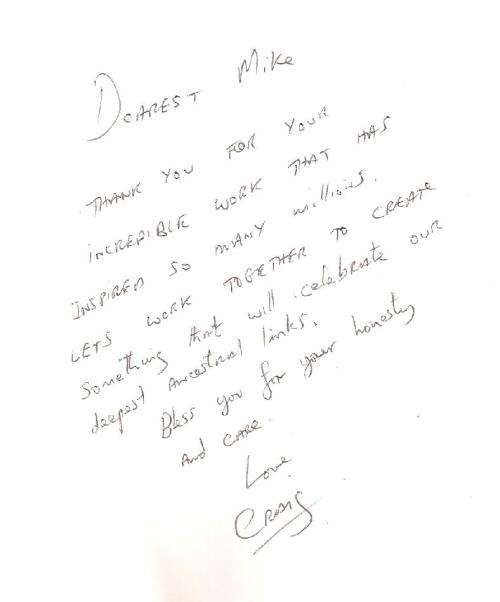 DEAREST Mike
THANK YOU FOR YOUR
iNCREDIBLE WORK THAT HAS
INSPIRED SO MANY millions.
LETS WORK TOGETHER TO CREATE
Something that will celebrate OUR
deepest Ancestral links.
Bless you for your honesty
And CARE.
Love
CRAIG